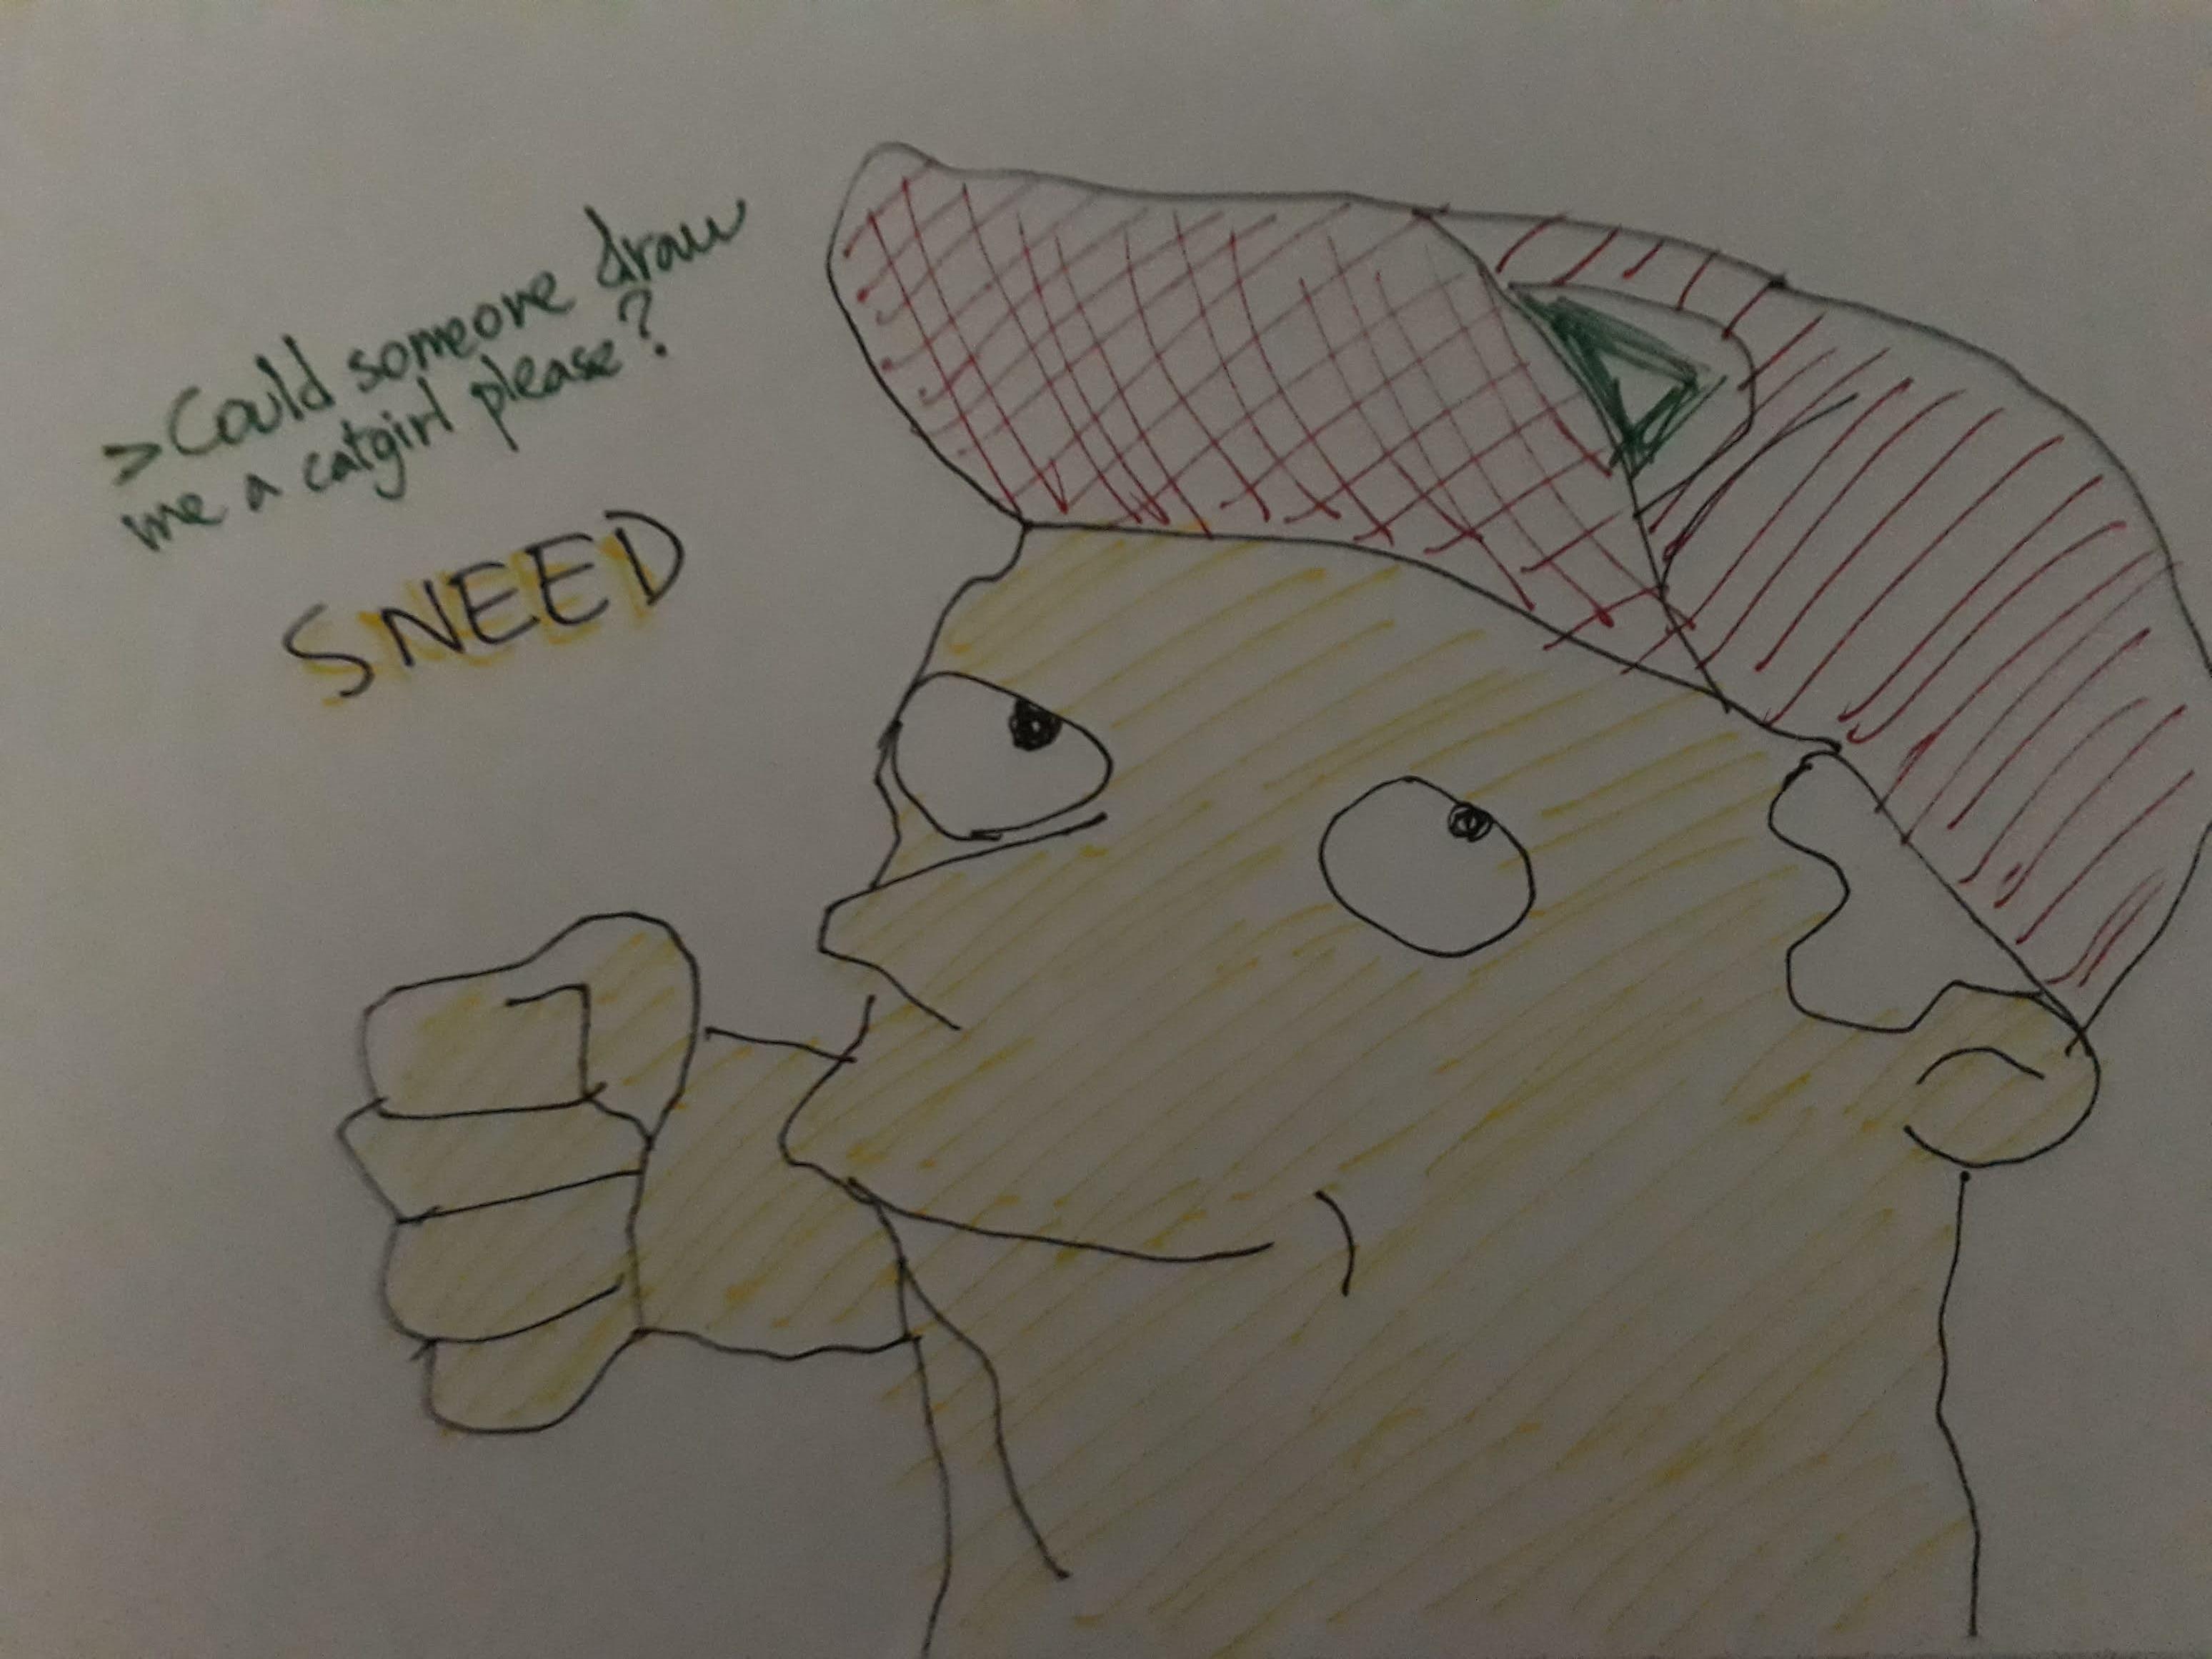 >Could someone draw
me a catgirl please?
SNEED